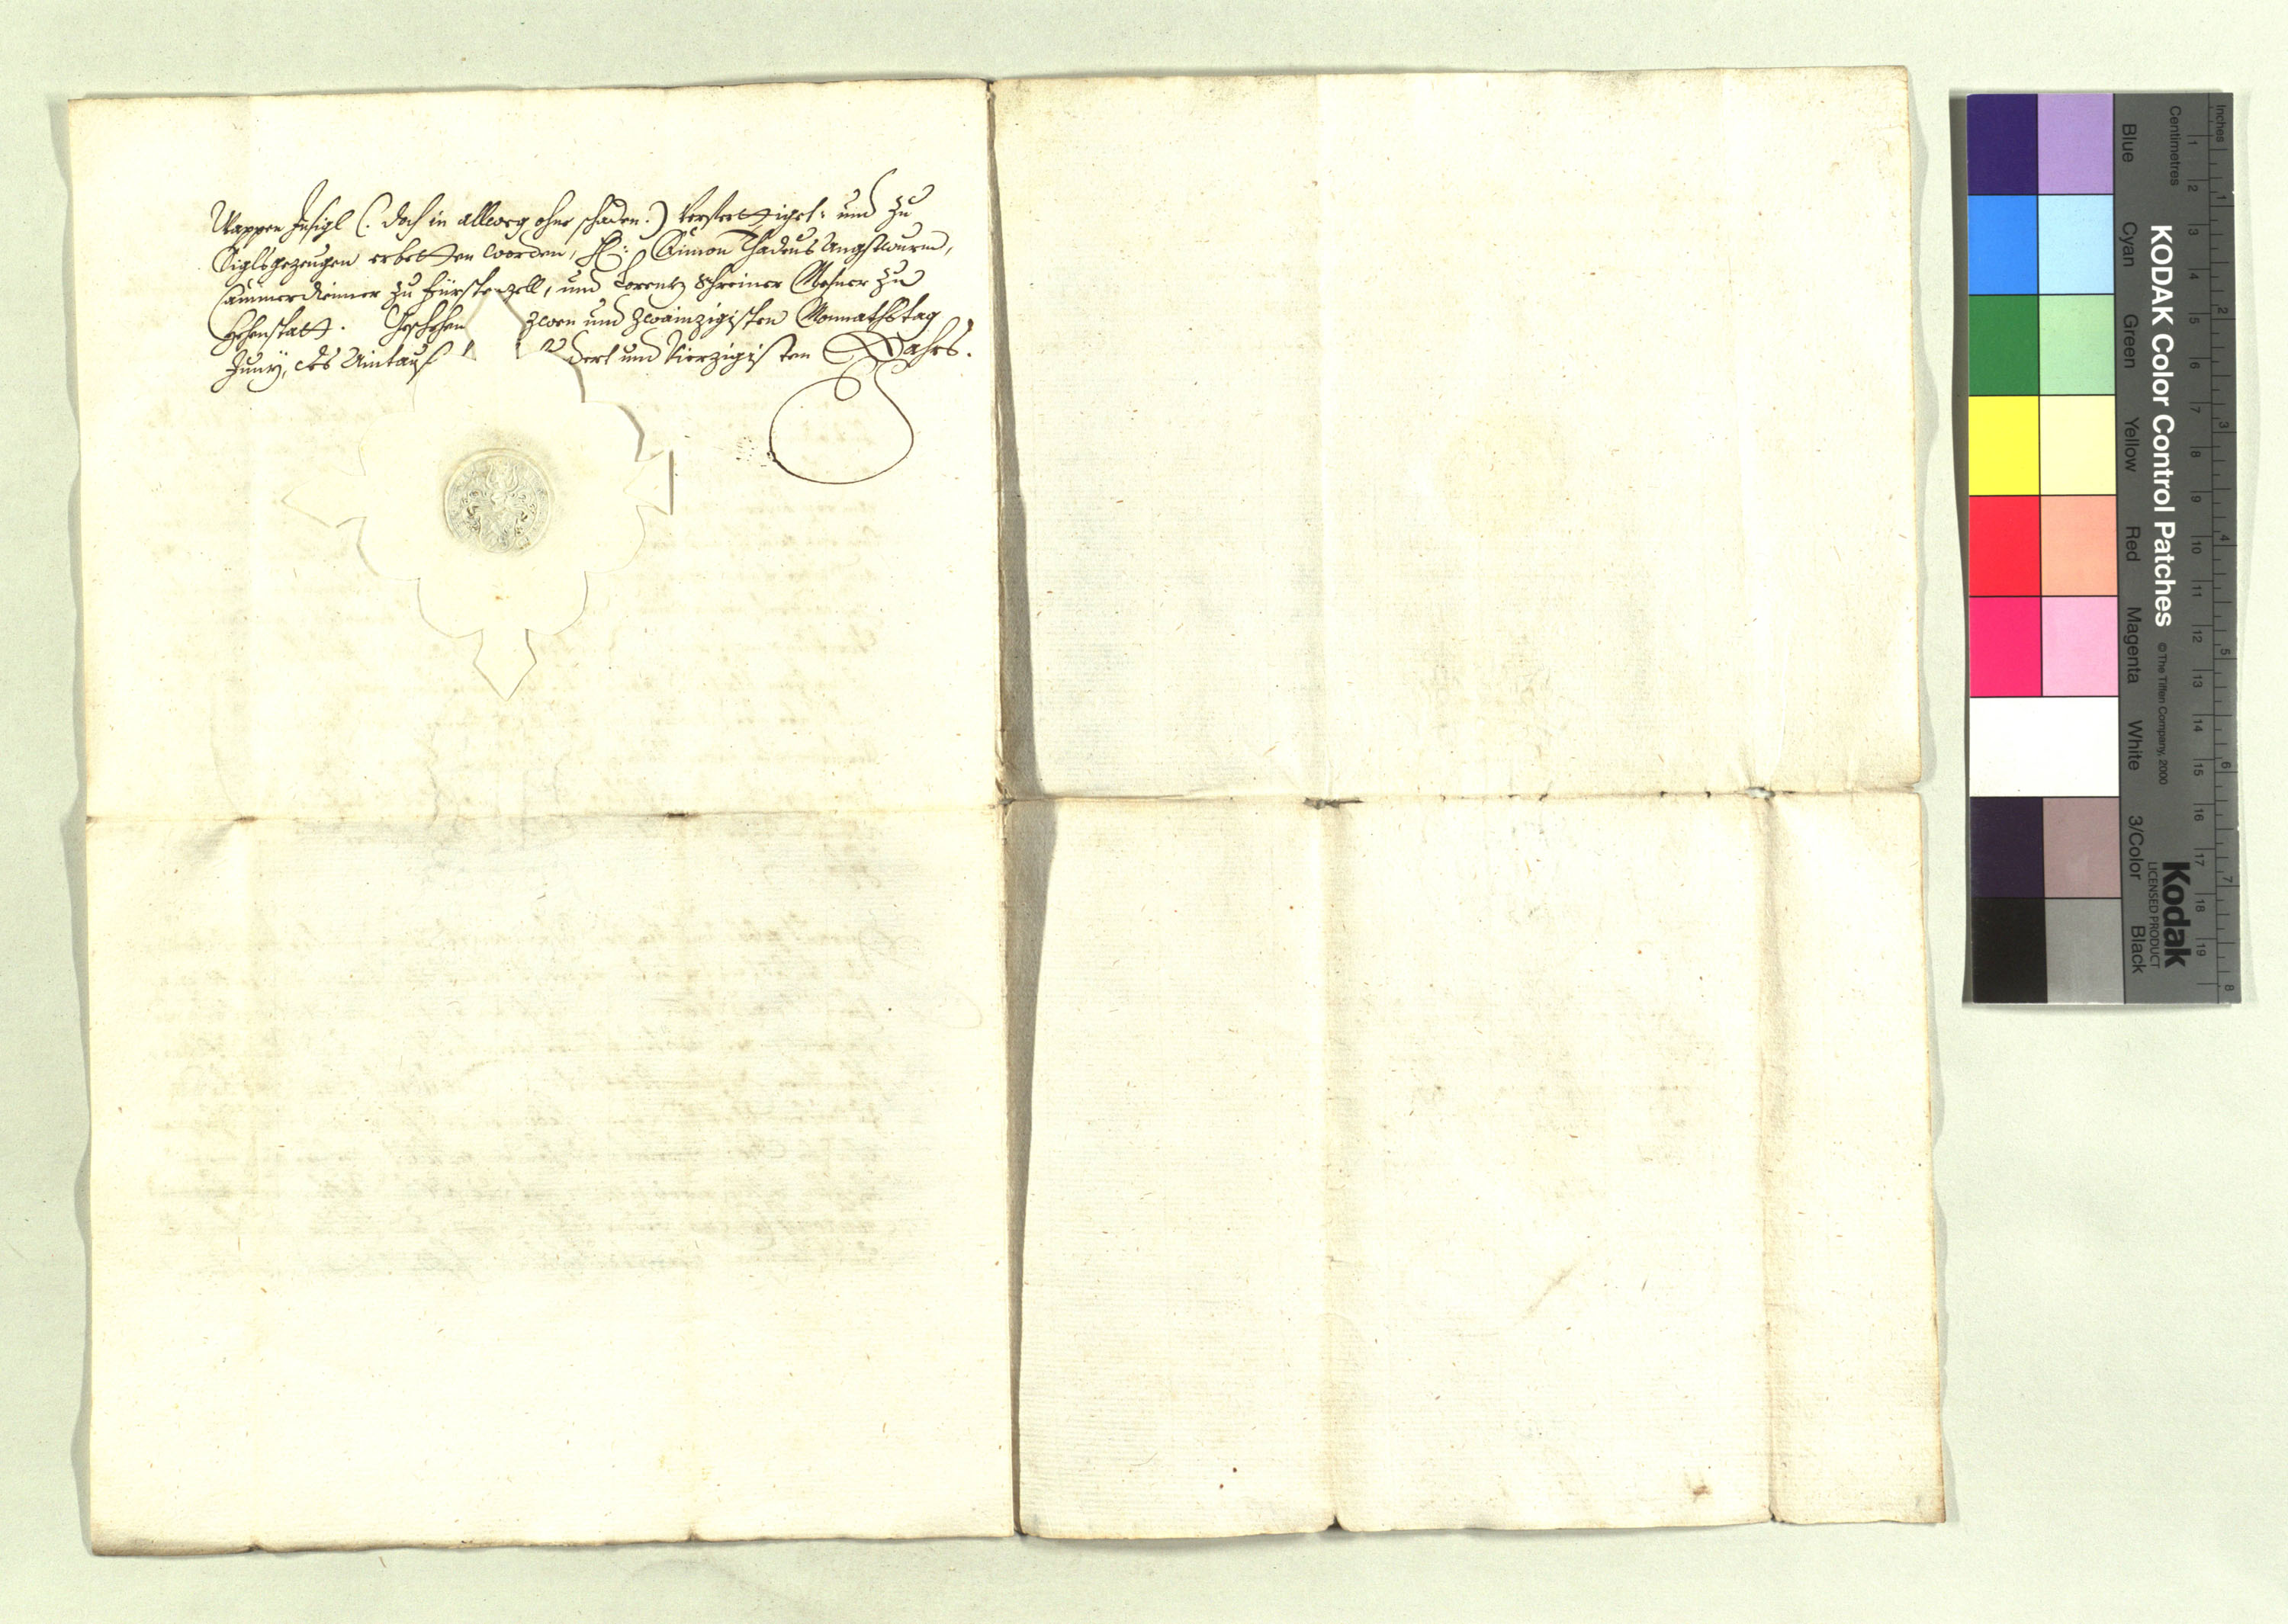 Wappen Insigl (: doch in allweg ohne schaden :) verferttiget: und zu
Siglsgezeugen erbetten worden, H: Simon Thadeus Angstwurm,
Cammerdienner zu Fürstenzell, und Lorentz Schreiner Mesner zu
Hehenstatt. Geschehen zwen und zwainzigisten Monnathstag
Juny, des Aintauß dert und Vierzigisten Jahrs.
KODAK Color Control Patches
© The Tiffen Company, 2000
Kodak
LICENSED PRODUCT
Inches
1 2 3 4 5 6 7 8
Centimetres
1 2 3 4 5 6 7 8 9 10 11 12 13 14 15 16 17 18 19
Blue
Cyan
Green
Yellow
Red
Magenta
White
3/Color
Black